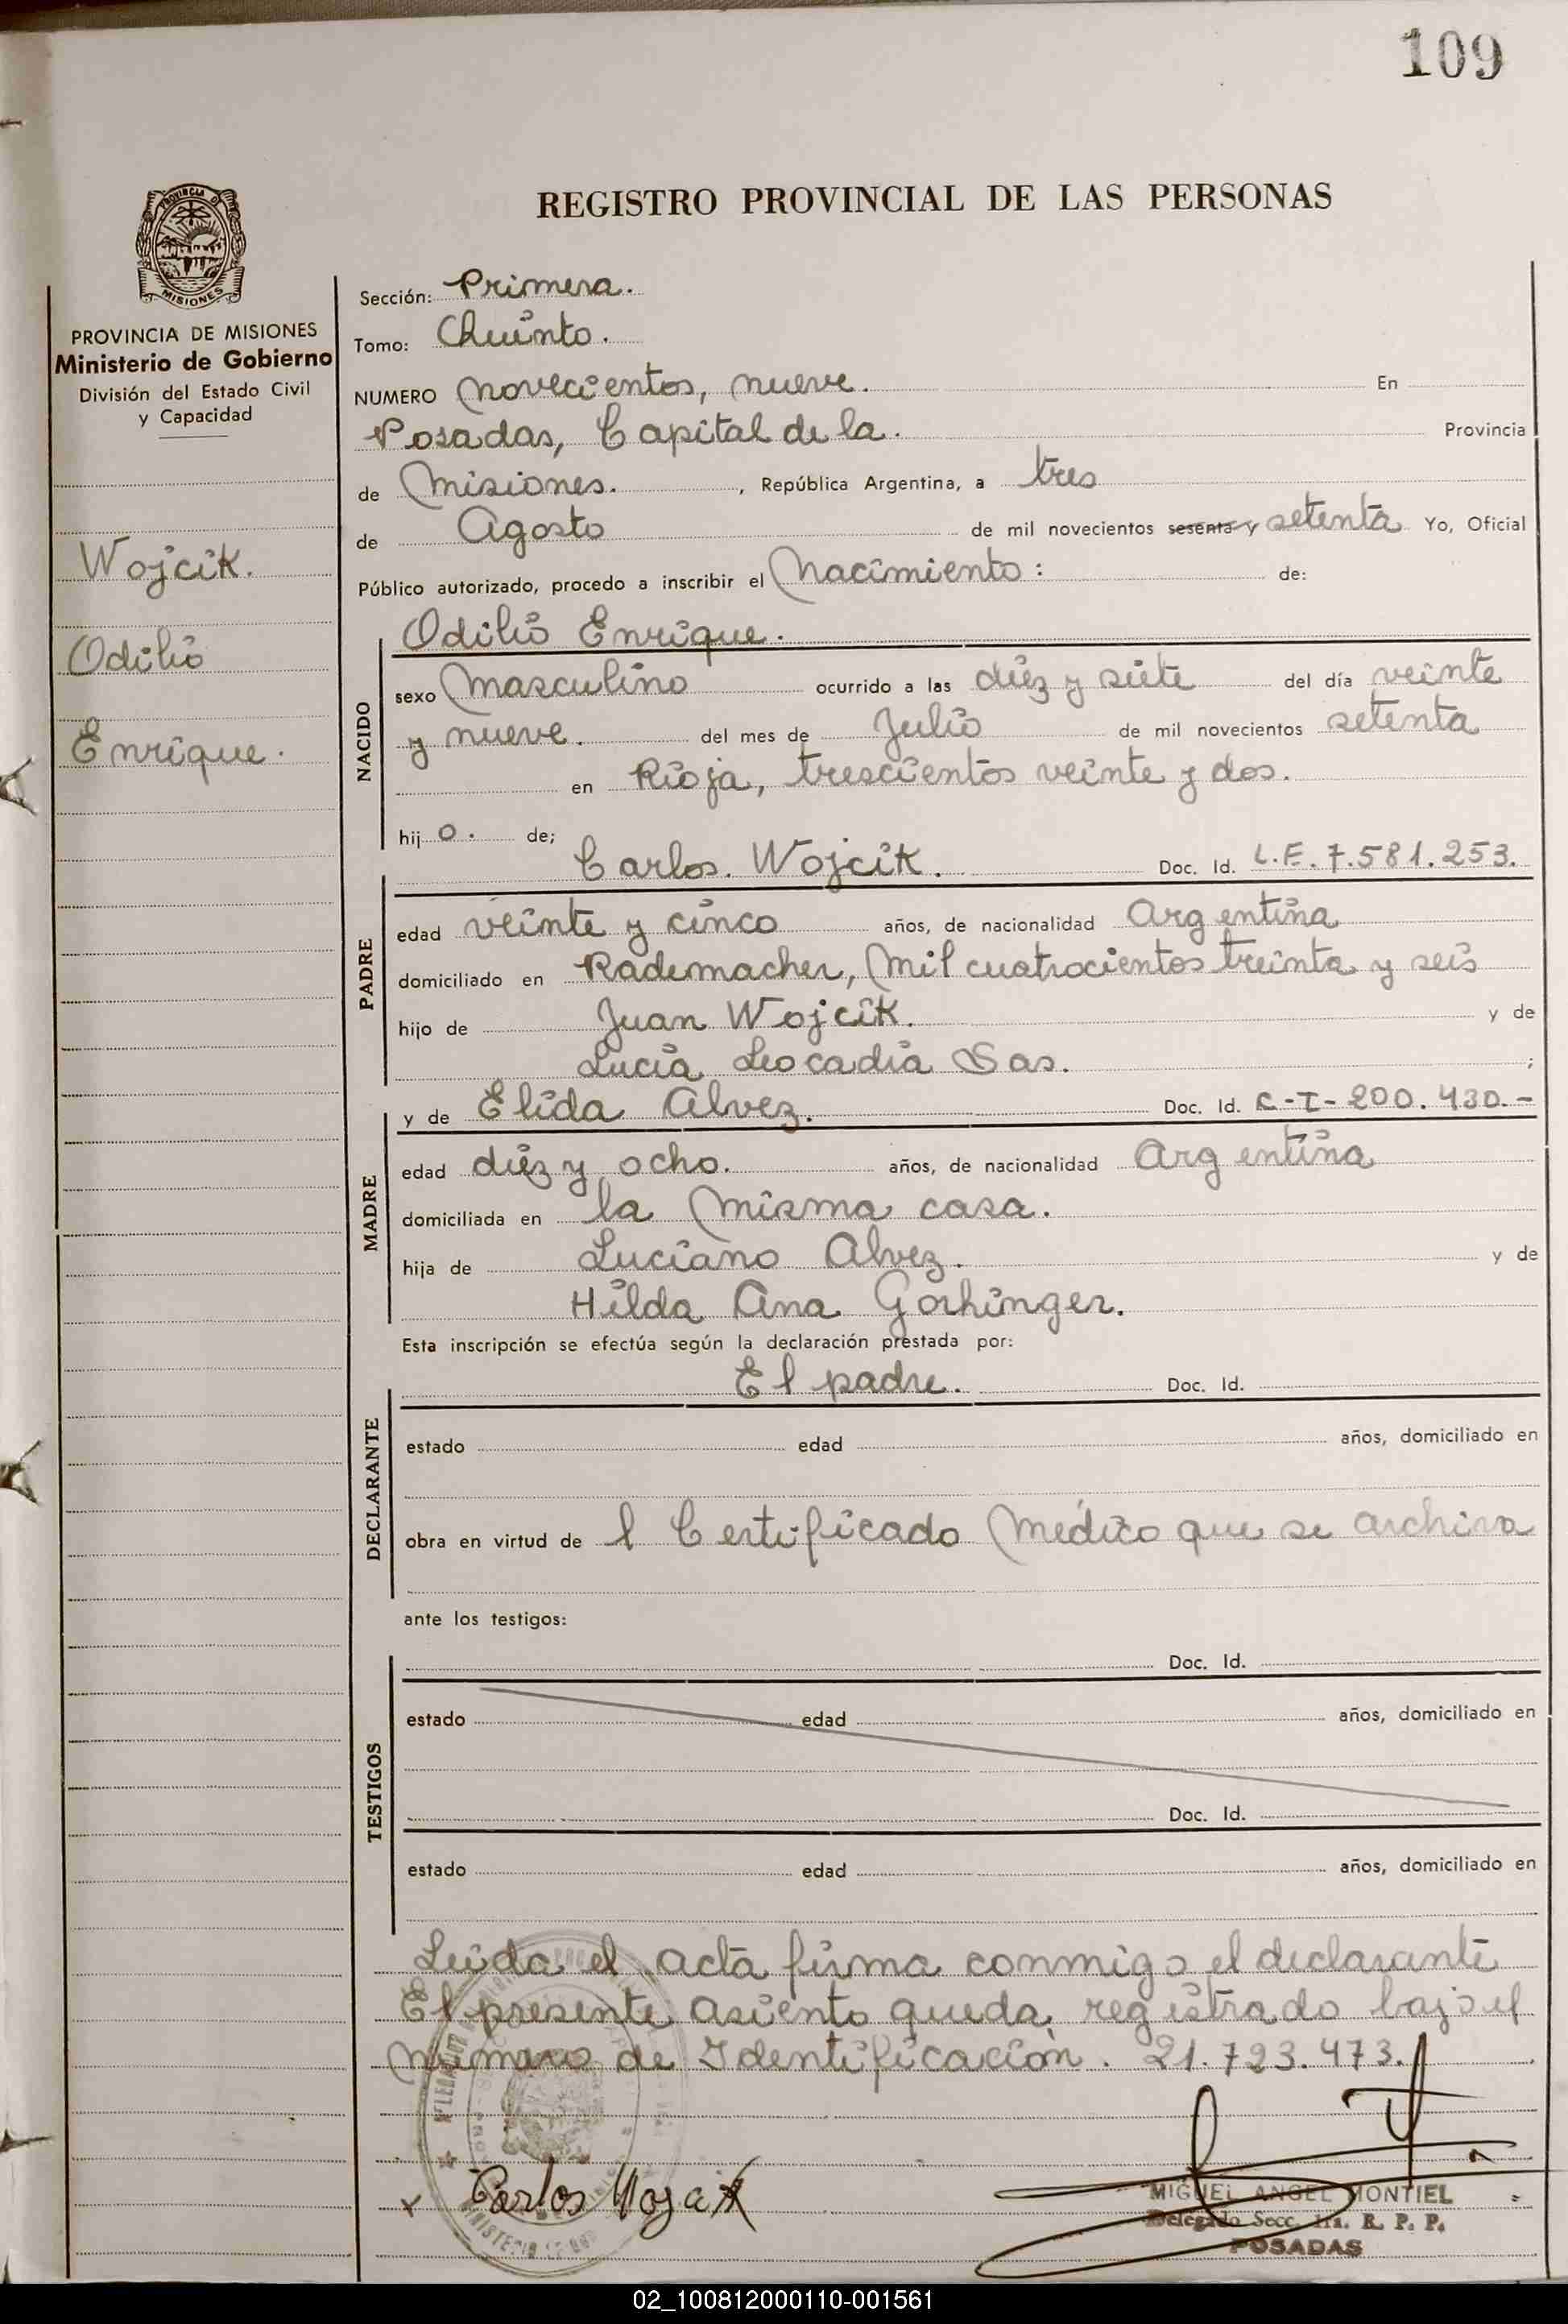 109
REGISTRO PROVINCIAL DE LAS PERSONAS
PROVINCIA DE MISIONES
MISIONES
PROVINCIA DE MISIONES
Ministerio de Gobierno
División del Estado Civil
y Capacidad
Wojcik.
Odilio
Enrique.
Sección: Primera.
Tomo: Quinto.
NUMERO novecientos, nueve. En
Posadas, Capital de la. Provincia
de Misiones. , República Argentina, a tres
de Agosto de mil novecientos sesenta y setenta Yo, Oficial
Público autorizado, procedo a inscribir el Nacimiento: de:
Odilio Enrique.
NACIDO
sexo Masculino ocurrido a las diez y siete del día veinte
y nueve. del mes de Julio de mil novecientos setenta
en Rioja, trescientos veinte y dos.
hij o. de;
Carlos. Wojcik. Doc. Id. L.E. 7.581.253.
PADRE
edad veinte y cinco años, de nacionalidad Argentina
domiciliado en Rademacher, Mil cuatrocientos treinta y seis
hijo de Juan Wojcik. y de
Lucia Leocadia Sas. ;
y de Elida Alvez. Doc. Id. C-I-200.430.-
MADRE
edad diez y ocho. años, de nacionalidad Argentina
domiciliada en la Misma casa.
hija de Luciano Alvez. y de
Hilda Ana Gorhinger.
Esta inscripción se efectúa según la declaración prestada por:
El padre. Doc. Id.
DECLARANTE
estado edad años, domiciliado en
obra en virtud de l Certificado Médico que se archiva
ante los testigos:
Doc. Id.
TESTIGOS
estado edad años, domiciliado en
Doc. Id.
estado edad años, domiciliado en
Leida el acta firma conmigo el declarante
El presente asiento queda registrado bajo el
numero de Identificación. 21.723.473.
Carlos Wojcik
MIGUEL ANGEL MONTIEL
Delegado Secc. 1ra. R. P. P.
POSADAS
02_100812000110-001561